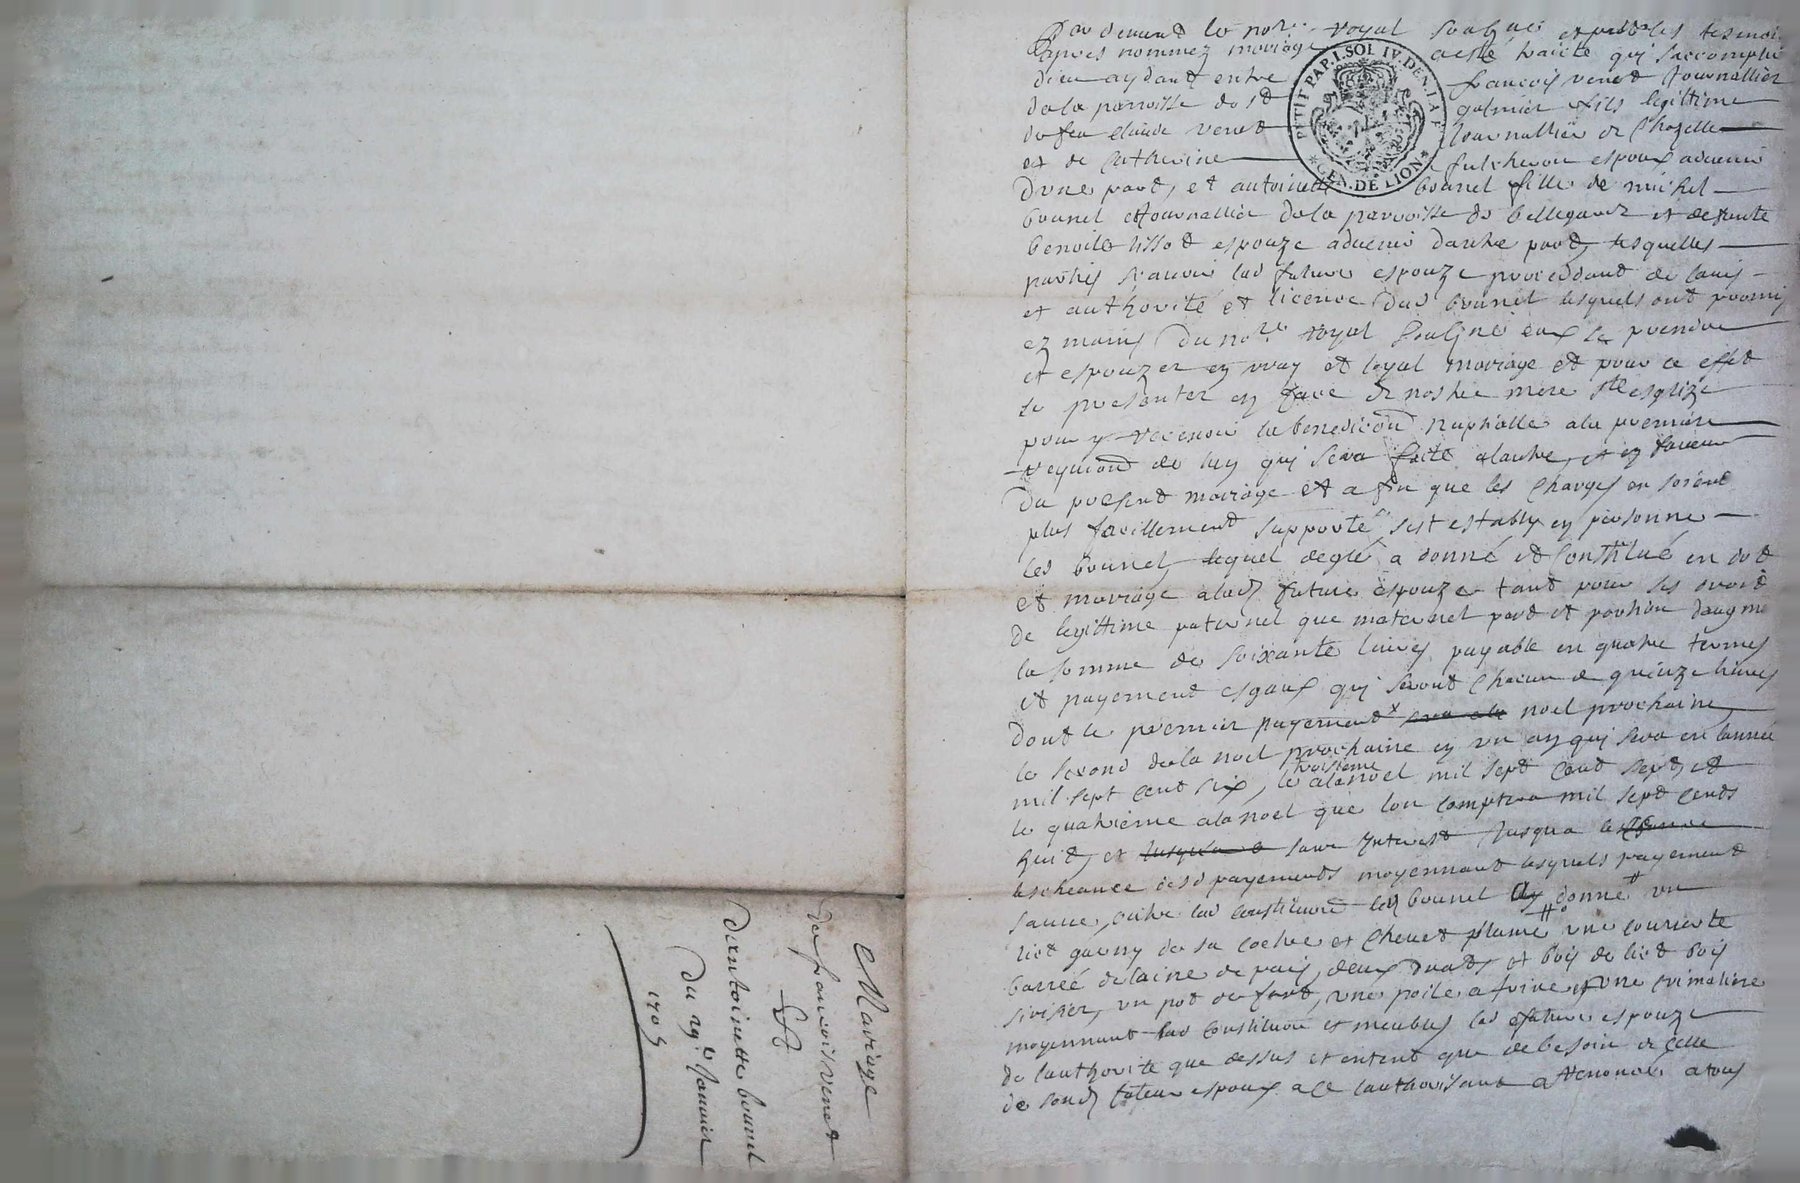 Par devant le no.re royal soubz.né et present les tesmoins
apres nommez mariage a esté traicté qui s'accomplira
dieu aydant entre francois venet Journallier
de la parroisse de st galmier fils legittime
de feu claude venet Journallier de Chazelle
et de Catherine espoux advenir
d'une part, et antoinette bounel fille de michel
bounel Journallier de la parroisse de bellegarde et defunte
benoite espouze advenir d'autre part, lesquelles
parties scavoir lad future espouze procedant de l'avis
et authorité et licence dud bounel lesquels ont promis
ez mains du no.re royal soubzné eux se prendre
et espouzer en vray et loyal mariage et pour ce effet
se presenter en face de nostre mere ste esglize
pour y recevoir la benediction nuptialle a la premiere
requi.on de luy qui sera faite a l'autre, et en faveur
du present mariage et a fin que les charges en soient
plus facillement supporté s'est estably en personne
led bounel, lequel de gré a donné et constitué en dot
et mariage a lad future espouze tant pour ses droits
de legittime paternel que maternel part et portion d'augment
la somme de soixante livres payable en quatre termes
et payement esgaux qui seront chacun de quinze livres
dont le premier payement x noel prochaine
le second de la noel prochaine en un an qui sera en l'année
mil sept cent six, le troisieme a la noel mil sept cent sept, et
le quatrieme a la noel que l'on comptera mil sept cents
huit, et jusques a sans Interest Jusqu'a
l'escheance desd payements moyennant lesquels payement
outre lad constitution led bounel donne un
lict garny de sa coetre et chevet plume une couverte
barrée de laine de pais, deux draps et bois de lict bois
sirisier, un pot de fert, une poile a frire et une crimaliere
moyennant lad constitution et meubles lad future espouze
de l'authorité que dessus et entent que de besoin de celle
de sond futeur espoux a ce l'authorisant a renoncé a tous
PETIT PAP. 1. SOL IV. DEN. LA F.
GEN. DE LION
Mariage
de francois venet
&
d'antoinette bounel
du 29e Janvier
1705